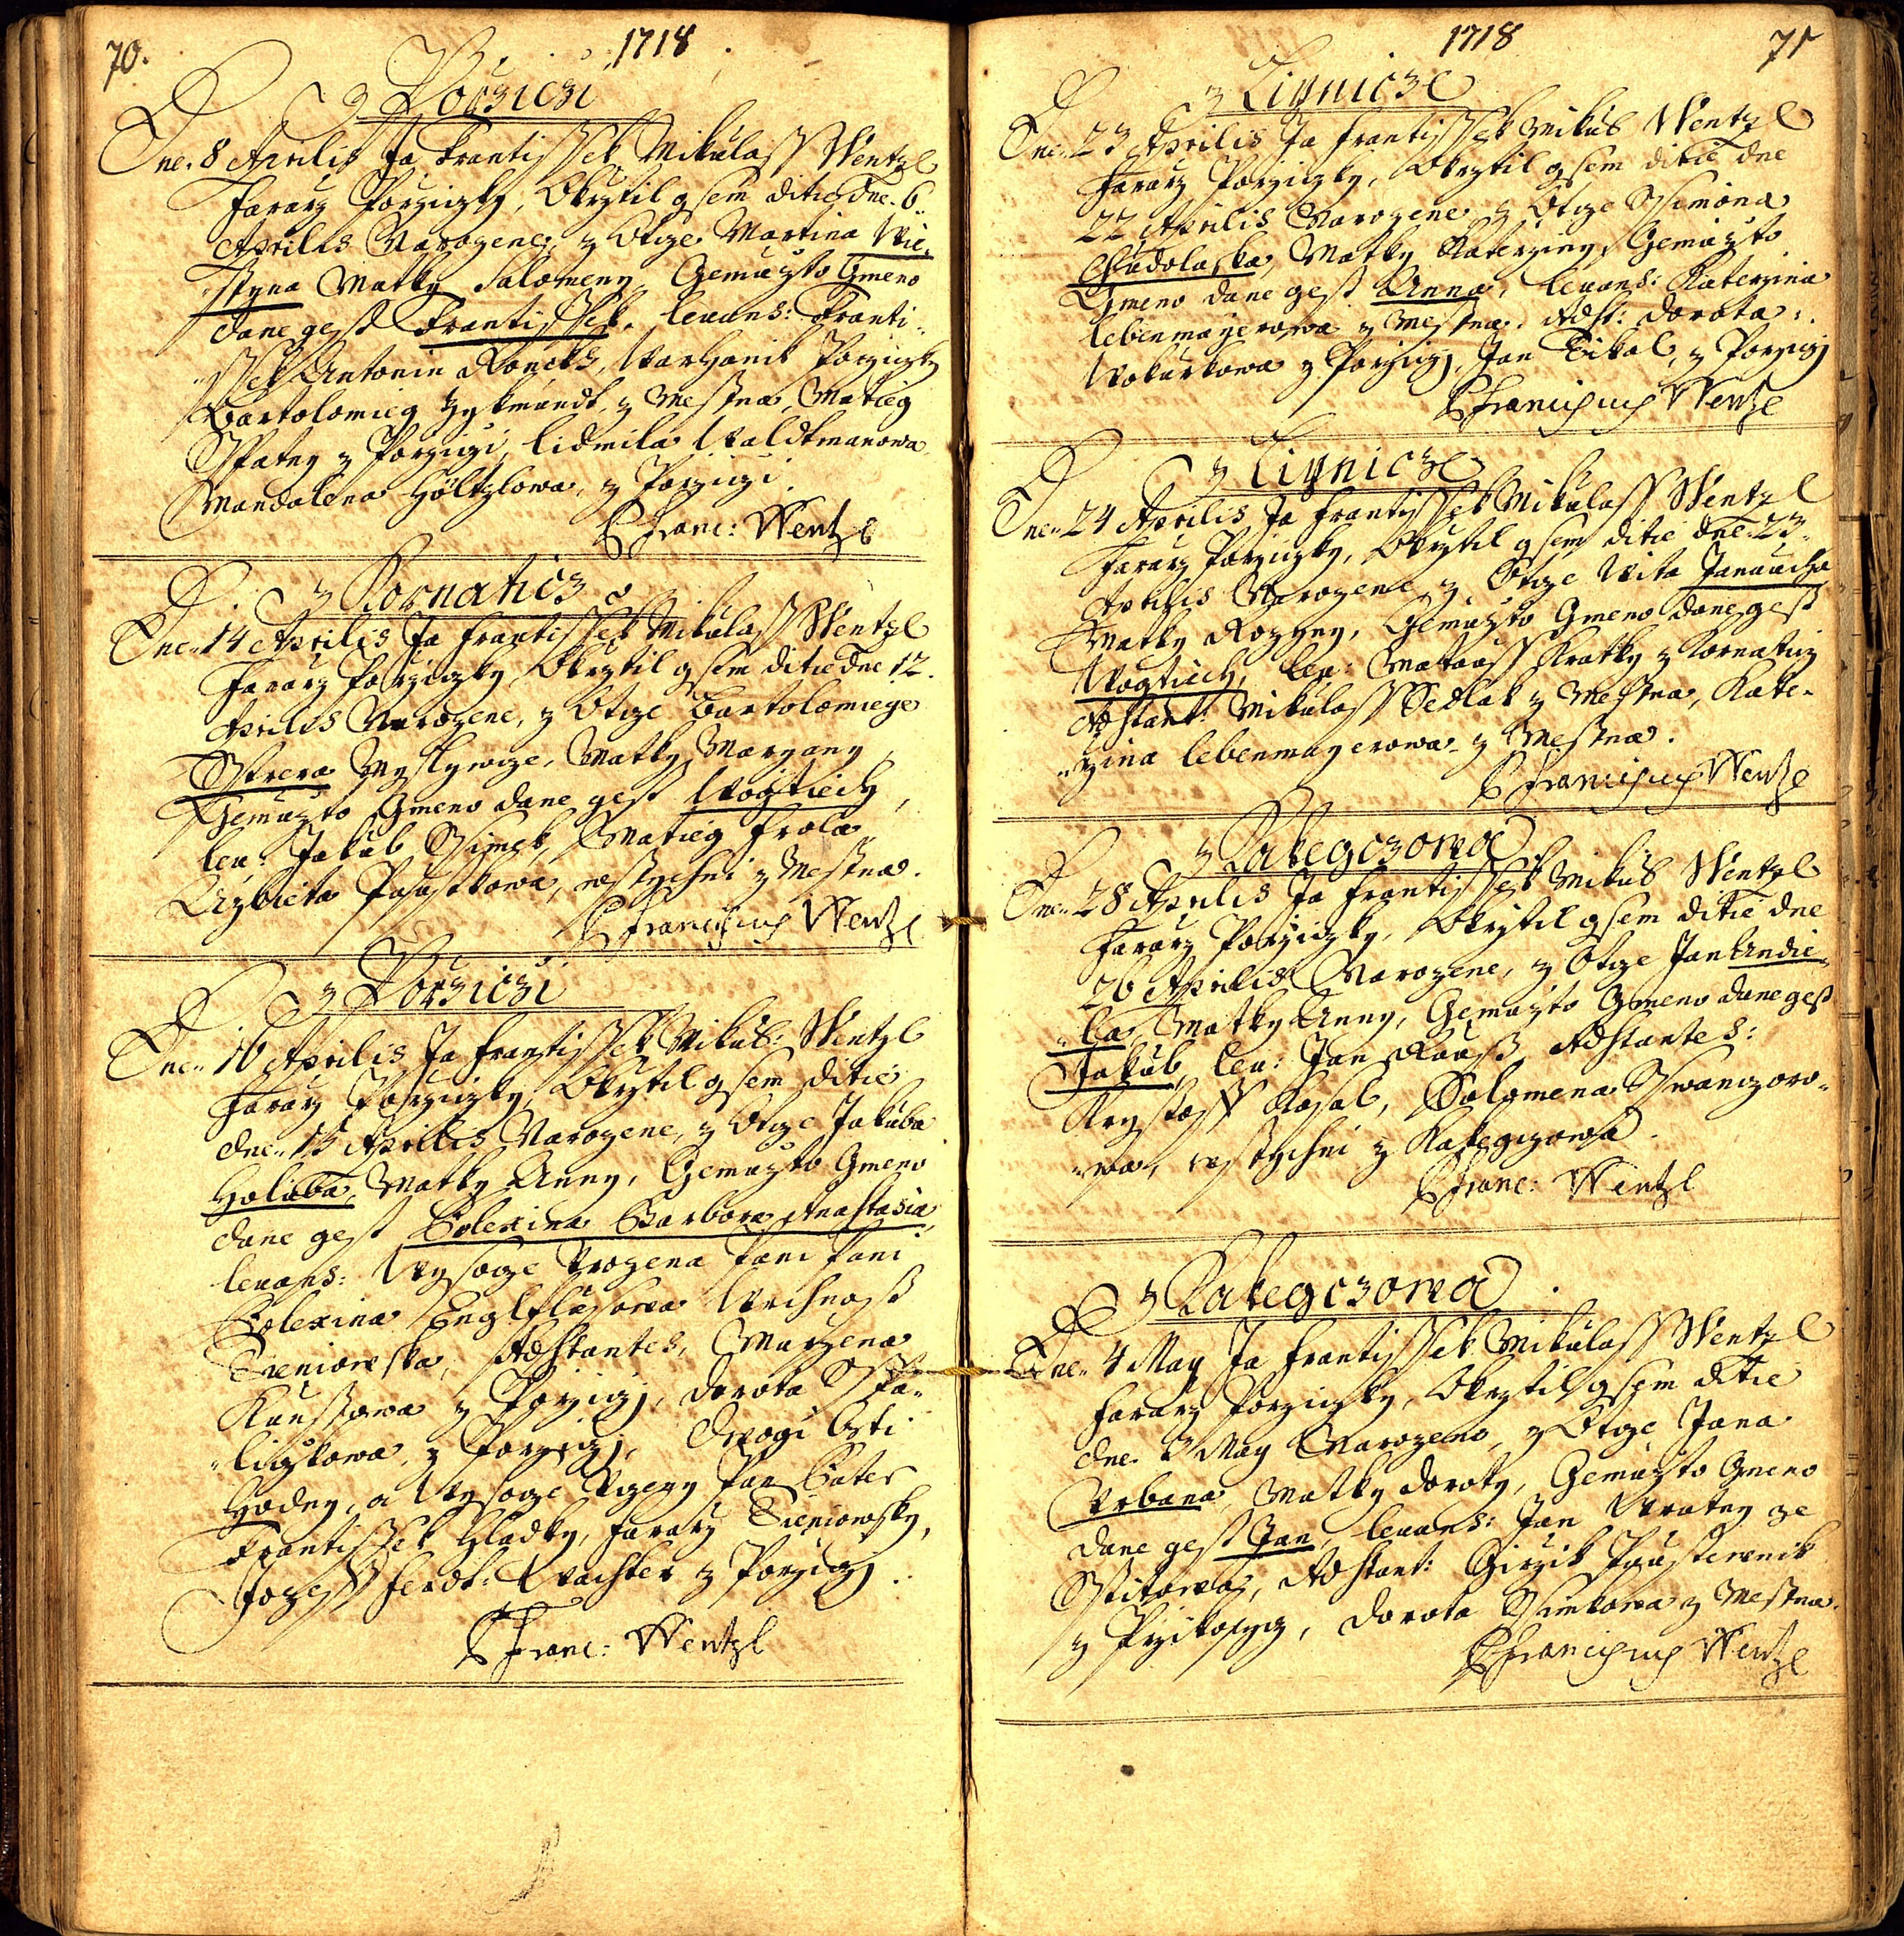 70.
1718
z Porziczi
Dne. 8 Aprilis Ja Frantissek Mikulass Wentzl
Fararz Porziczky, Okrztil gsem ditie dne. 6.
Aprilis Narozene, z Otcze Martina Wie-
"styna Matky Salomeny, Gemuzto Gmeno
dane gest Frantissek. levans: Franti-
"ssek Antonin Koneks, Warhanik Porziczky
Bartolomieg Zykmundt z Mestna, Matieg
Spatny z Porziczi, Lidmila Waldtmanowa
Mandalena Höltzlowa, z Porziczi.
Franc: Wentzl
z Kornaticz
Dne. 14 Aprilis Ja Frantissek Mikulass Wentzl
Fararz Porziczky Okrztil gsem ditie dne 12.
Aprilis Narozene, z Otcze Bartolomiege
Myslywcze, Matky Maryany
Gemuzto Gmeno dane gest Wogtiech,
lev: Jakub Ssimek, Matieg Frola
Alzbieta Paustkowa, wssychni z Mestna.
Franciscus Wentzl
z Porziczi
Dne. 16 Aprilis Ja Frantissek Mikul: Wentzl
Fararz Porziczky Okrztil gsem ditie
dne. 15 Aprilis Narozene, z Otcze Jakuba
Holuba, Matky Anny, Gemuzto Gmeno
dane gest Polexina Barbora Anastasia,
levans: Wysocze Urozena Pani Pani
Polexina Englflusowa Wrchnost
Adstantes, Maryena
Kunssowa z Porziczj, Dorota
"liczkowa, z Porziczj, Dwogi Cti
Hodny, a Wysocze Uczeny Pan Pater
Frantissek Hladky, Fararz
Jozeff Ferdt: Wachter z Porziczj.
Franc: Wentzl
1718
71
z Lipnicze
Dne. 23 Aprilis Ja Frantissek Mikul Wentzl
Fararz Porziczky, Okrztil gsem ditie dne
22 Aprilis Narozene z Otcze Ssimona
Chudolaska, Matky Katerziny, Gemuzto
Gmeno dane gest Anna, levans: Katerzina
Lebenmayerowa z Mestna. Adst: Dorota
Wokurkowa z Porziczj, Jan Cikal, z Porziczj
Franciscus Wentzl
z Lipnicze
Dne. 24 Aprilis Ja Frantissek Mikulass Wentzl
Fararz Porziczky, Okrztil gsem ditie dne. 23
Aprilis Narozene z Otcze Wita Janaucha
Matky Rozyny, Gemuzto Gmeno dane gest
Wogtiech, lev: Mataus Kratky z Kornaticz
Adstant: Mikulass Sedlak z Mestna, Kate-
"rzina Lebenmayerowa z Mestna.
Franciscus Wentzl
z Kakegczowa
Dne. 28 Aprilis Ja Frantissek Mikul Wentzl
Fararz Porziczky, Okrztil gsem ditie dne
26 Aprilis Narozene, z Otcze Jan Andie-
"la Matky Anny, Gemuzto Gmeno dane gest
Jakub, lev: Jan Adstantes:
Krysstoff Kasal, Salomena Sswanczoro-
"wa, wssychni z Kakegczowa.
Franc: Wentzl
z Kakegczowa.
Dne. 4 May Ja Frantissek Mikulass Wentzl
Fararz Porziczky, Okrztil gsem ditie
dne. May Narozene, z Otcze Jana
Urbana, Matky Doroty, Gemuzto Gmeno
dane gest Jan, levans: Jan Wratny ze
Sstitowa, Adstant: Girzik Paustewnik
z Przikosicz, Dorota Ssimkowa z Mestna.
Franciscus Wentzl